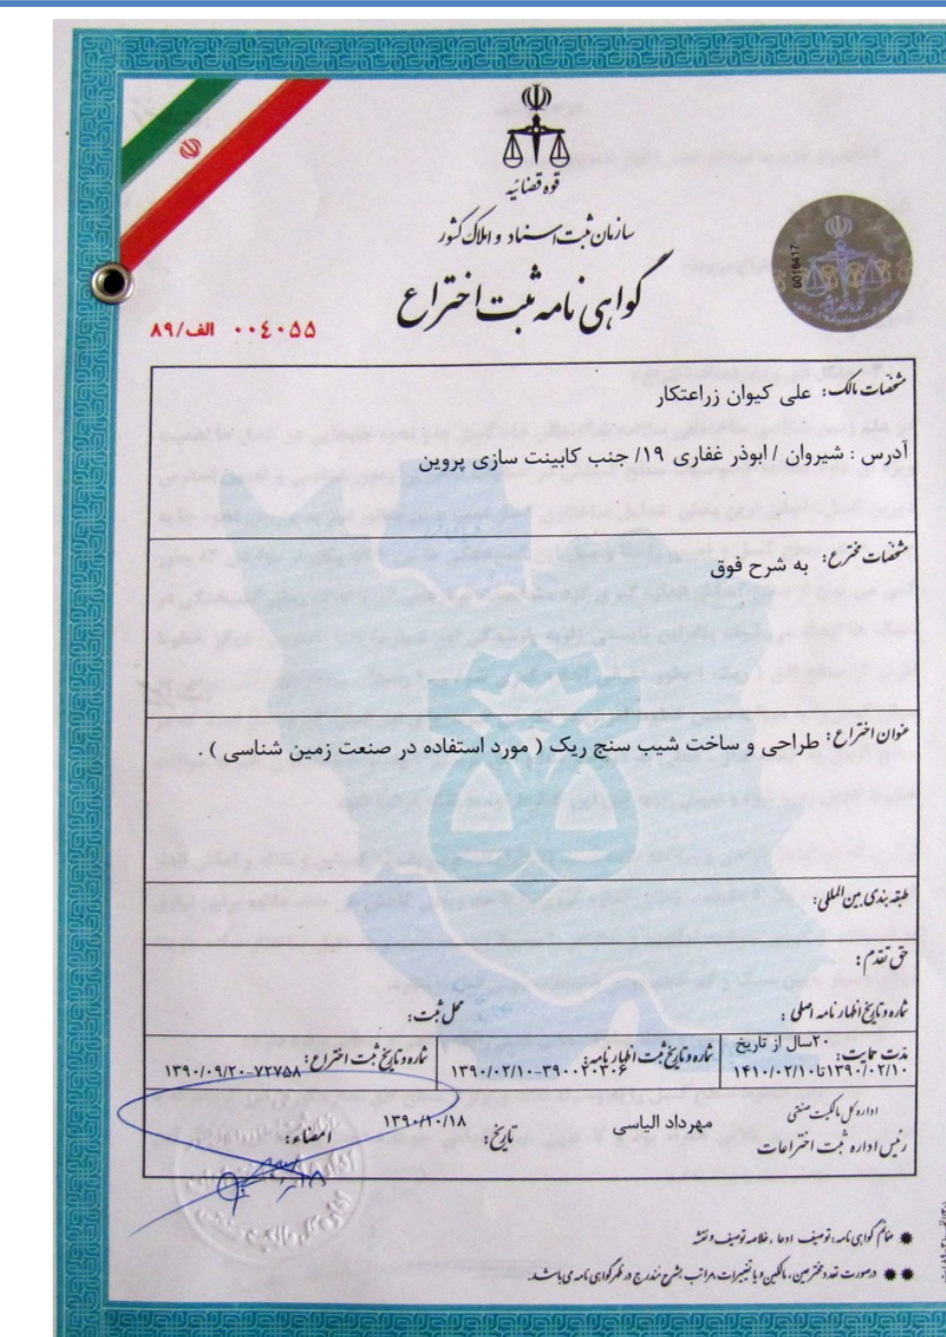 قوه قضائیه
سازمان ثبت اسناد و املاک کشور
گواهی نامه ثبت اختراع
6016417
۰۰٤۰۵۵ الف/۸۹
مشخصات مالک: علی کیوان زراعتکار
آدرس : شیروان / ابوذر غفاری ۱۹/ جنب کابینت سازی پروین
مشخصات مخترع: به شرح فوق
عنوان اختراع: طراحی و ساخت شیب سنج ریک ( مورد استفاده در صنعت زمین شناسی ) .
طبقه بندی بین المللی:
حق تقدم:
شماره و تاریخ اظهارنامه اصلی : محل ثبت:
مدت حمایت: ۲۰سال از تاریخ
۱۳۹۰/۰۲/۱۰تا۱۴۱۰/۰۲/۱۰
شماره و تاریخ ثبت اظهارنامه:
۱۳۹۰/۰۲/۱۰-۳۹۰۰۲۰۳۰۶
شماره و تاریخ ثبت اختراع:
۱۳۹۰/۰۹/۲۰-۷۲۷۵۸
اداره کل مالکیت صنعتی
رئیس اداره ثبت اختراعات
مهرداد الیاسی
تاریخ: ۱۳۹۰/۱۰/۱۸
امضاء:
* ضمائم گواهی نامه: توصیف، ادعا، خلاصه توصیف و نقشه
** درصورت تعدد مخترعین، مالکین و یا تغییرات، مراتب بشرح مندرج در ظهر گواهی نامه می باشد.